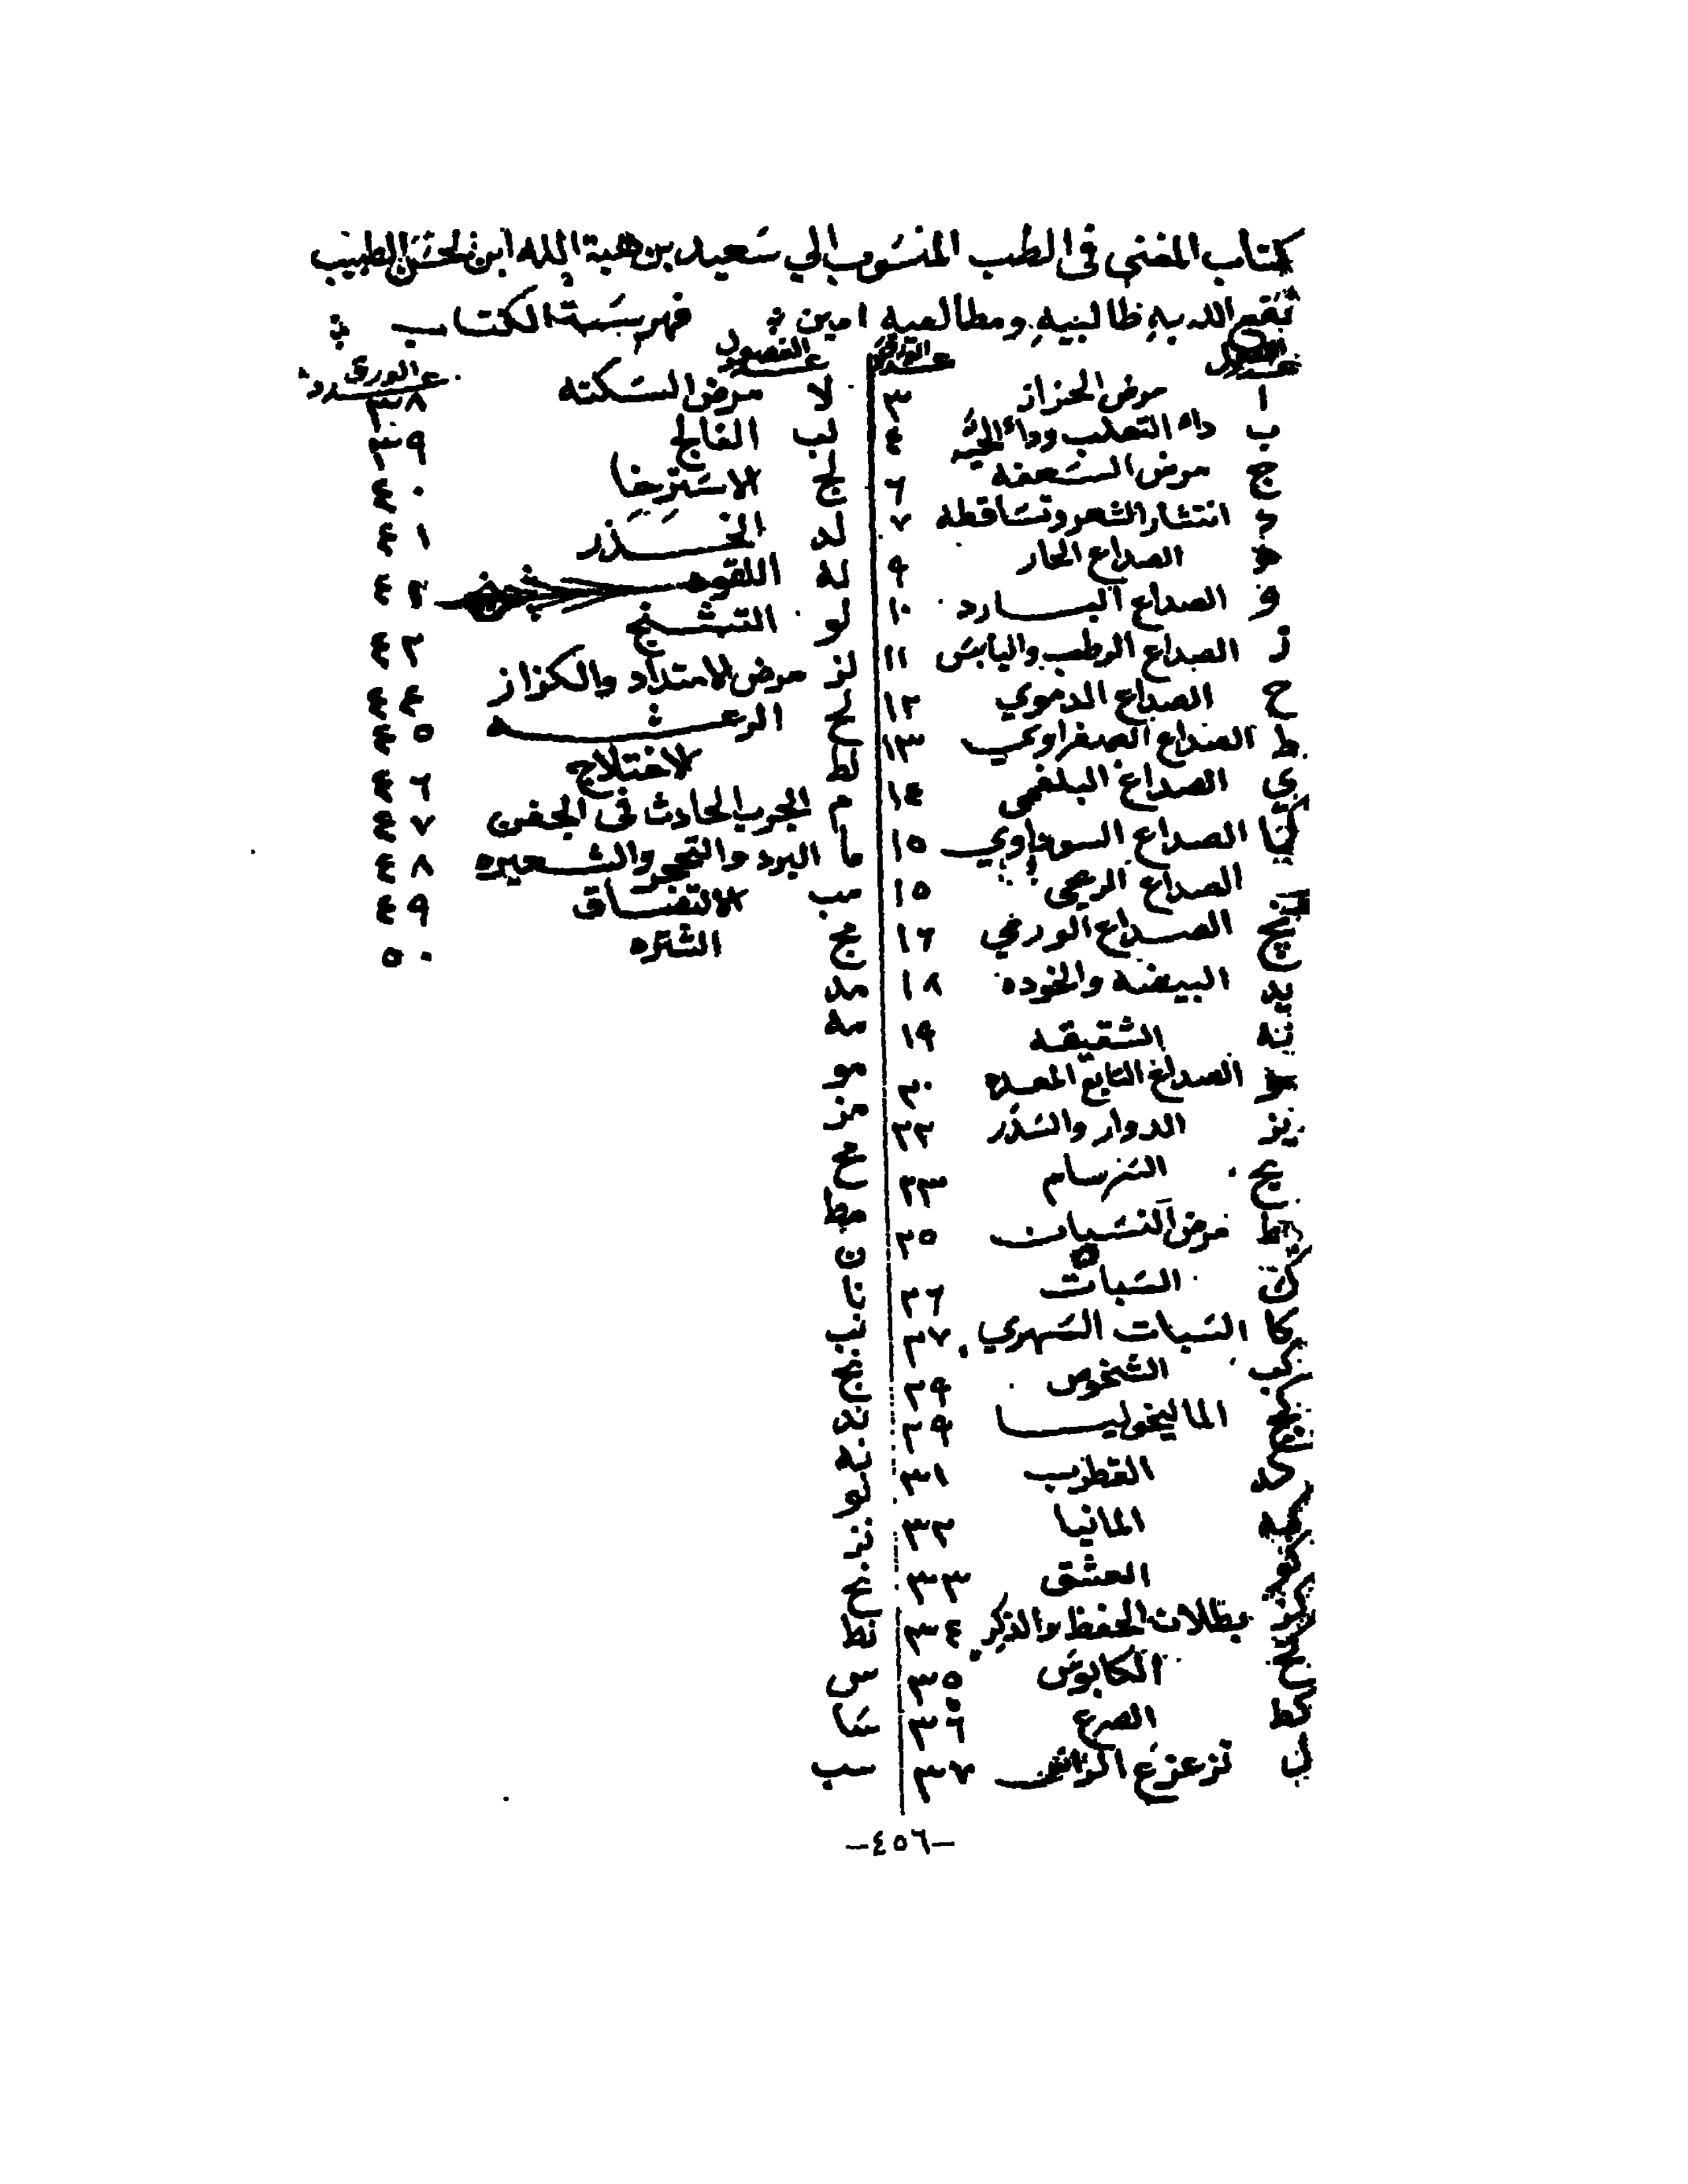 كتاب المغني في الطب المنسوب الي سعيد بن هبة الله ابن الحسن الطبيب
نفع الله به طالبيه ومطالعيه امين فهرسة الكتاب
عدد الفصول عدد الورق
ا مرض الحزاز ٣
ب داء الثعلب وداء الحية ٤
ج مرض السعفه ٦
د انتشار الشعر وتساقطه ٧
ه الصداع الحار ٩
و الصداع البارد ١٠
ز الصداع الرطب واليابس ١١
ح الصداع الدموي ١٢
ط الصداع الصفراوي ١٣
ي الصداع البلغمي ١٤
يا الصداع السوداوي ١٥
الصداع الريحي ١٥
يج الصداع الورمي ١٦
يد البيضه والخوده ١٨
يه الشقيقه ١٩
يو الصداع التابع المعده ٢٠
يز الدوار والسدر ٢٢
يح السرسام ٢٣
يط مرض النسيان ٢٥
ك السبات ٢٦
كا السبات السهري ٢٧
كب الشخوص ٢٩
كج الماليخوليا ٢٩
كد القطرب ٣١
كه المانيا ٣٢
كو العشق ٣٣
كز بطلان الحفظ والذكر ٣٤
كح الكابوس ٣٥
كط الصرع ٣٦
ل تزعزع الراس ٣٧
عدد الفصول عدد الورق
لا مرض السكته ٣٨
لب الفالج ٣٩
لج الاسترخا ٤٠
لد الخدر ٤١
له اللقوه ٤٢
لو التشنج ٤٢
لز مرض الامتداد والكزاز ٤٤
لح الرعشه ٤٥
لط الاختلاج ٤٦
م الجرب الحادث في الجفن ٤٧
ما البرد والتحجر والشعيره ٤٨
مب الالتصاق ٤٩
مج الشتره ٥٠
مد
مه
مو
مز
مح
مط
ن
نا
نب
نج
ند
نه
نو
نز
نح
نط
س
سا
سب
-٤٥٦-